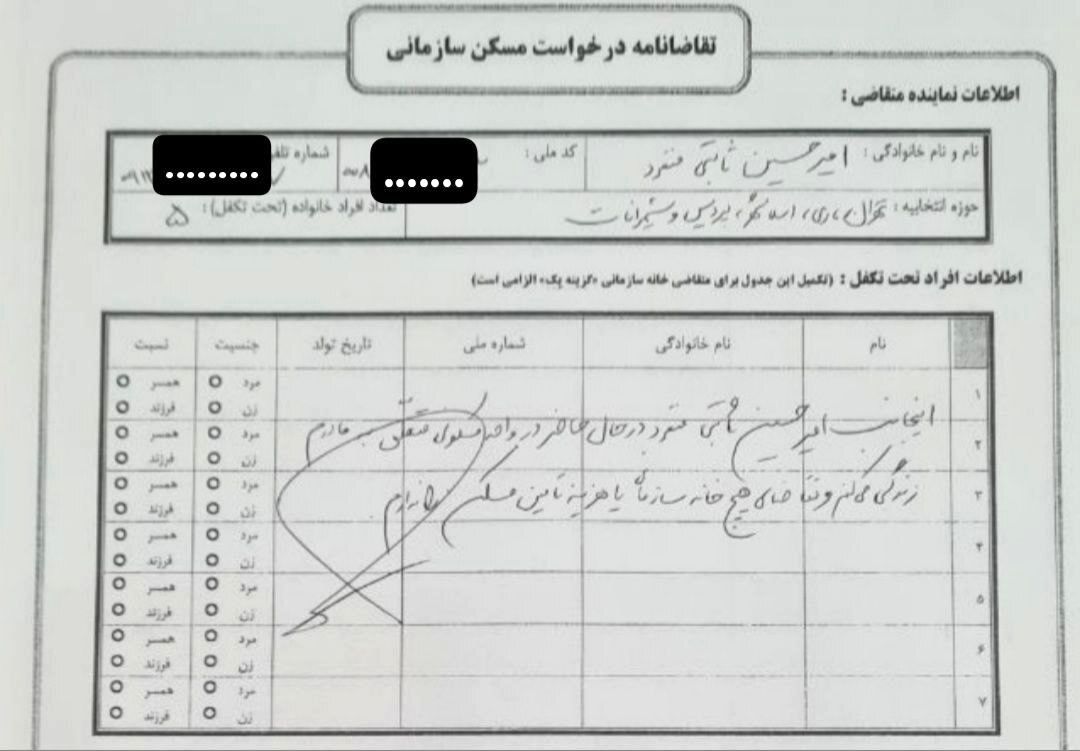 تقاضانامه درخواست مسکن سازمانی
اطلاعات نماینده متقاضی :
نام و نام خانوادگی : امیرحسین ثابتی منفرد کد ملی : شماره تلفن
حوزه انتخابیه : تهران، ری، اسلامشهر، پردیس و شمیرانات تعداد افراد خانواده (تحت تکفل) : ۵
اطلاعات افراد تحت تکفل : (تکمیل این جدول برای متقاضی خانه سازمانی «گزینه یک» الزامی است)
نام نام خانوادگی شماره ملی تاریخ تولد جنسیت نسبت
۱ مرد همسر
زن فرزند
اینجانب امیرحسین ثابتی منفرد در حال حاضر در واحد مسکونی متعلق به مادرم
۲ مرد همسر
زن فرزند
زندگی می‌کنم و تقاضای هیچ خانه سازمانی یا هزینه تامین مسکن را ندارم
۳ مرد همسر
زن فرزند
۴ مرد همسر
زن فرزند
۵ مرد همسر
زن فرزند
۶ مرد همسر
زن فرزند
۷ مرد همسر
زن فرزند